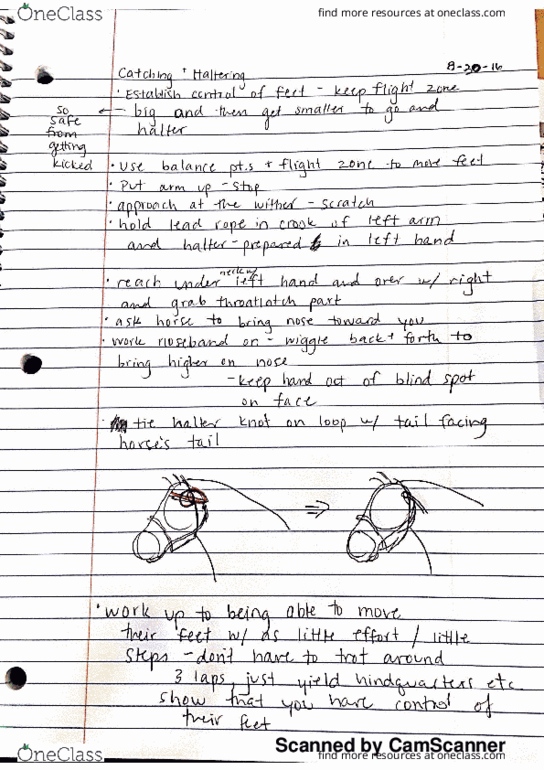 OneClass
find more resources at oneclass.com
8-20-16
Catching + Haltering
· Establish control of feet - keep flight zone
so safe from getting kicked
← big and then get smaller to go and
halter
· use balance pt.s + flight zone to move feet
· Put arm up - stop
· approach at the wither - scratch
· hold lead rope in crook of left arm
and halter - prepared in left hand
· reach under neck w/ left hand and over w/ right
and grab throatlatch part
· ask horse to bring nose toward you
· work noseband on - wiggle back + forth to
bring higher on nose
- keep hand out of blind spot
on face
· tie halter knot on loop w/ tail facing
horse's tail
⇒
· work up to being able to move
their feet w/ as little effort / little
steps - don't have to trot around
3 laps, just yield hindquarters etc.
show that you have control of
their feet
Scanned by CamScanner
OneClass
find more resources at oneclass.com